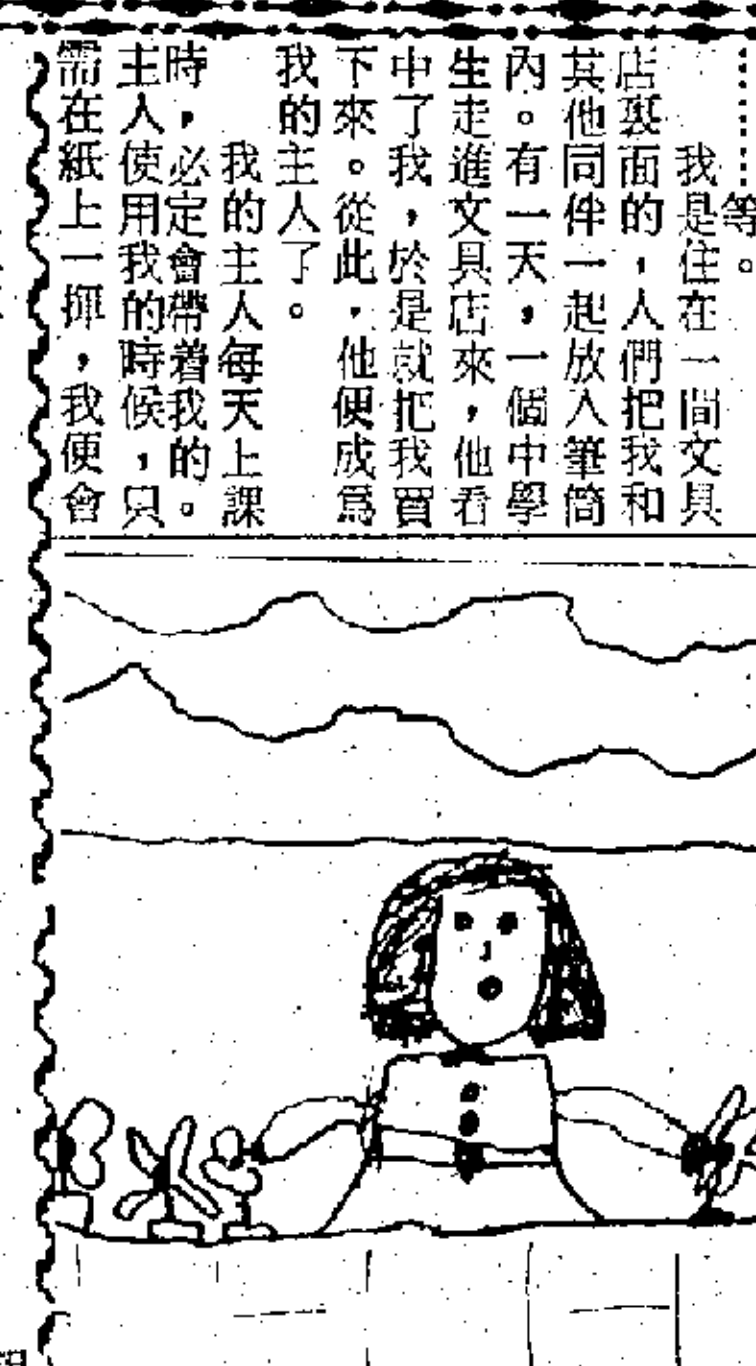 ⋯⋯等。
我是住在一間文具
店裏面的，人們把我和
其他同伴一起放入筆筒
內。有一天，一個中學
生走進文具店來，他看
中了我，於是就把我買
下來。從此，他便成爲
我的主人了。
我的主人每天上課
時，必定會帶着我的。
主人使用我的時候，只
需在紙上一揮，我便會